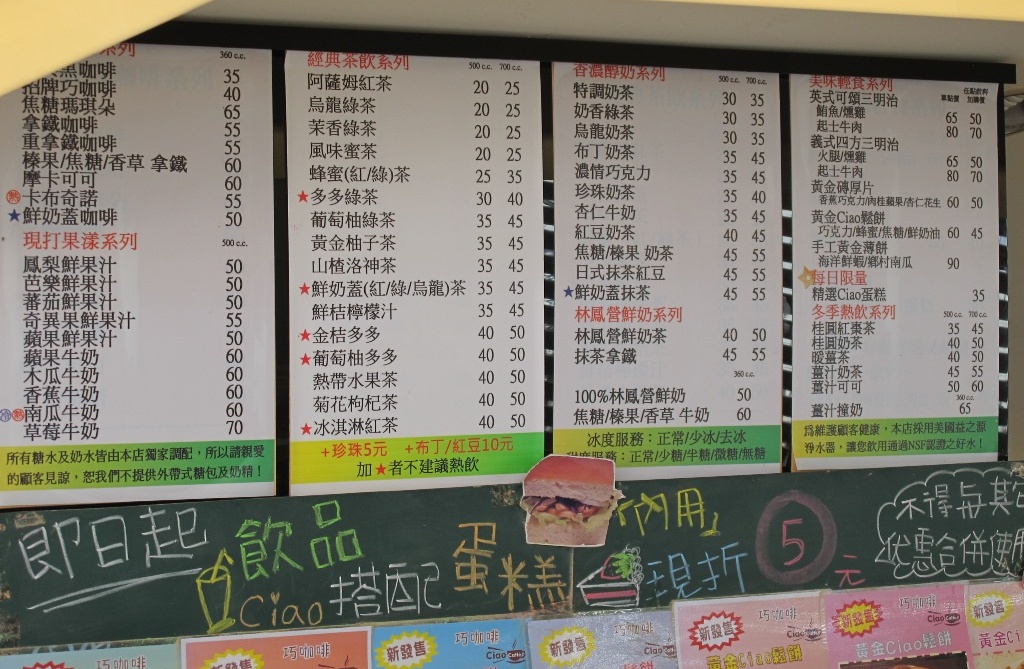 系列 360 c.c.
黑咖啡 35
招牌巧咖啡 40
焦糖瑪琪朵 65
拿鐵咖啡 55
重拿鐵咖啡 55
榛果/焦糖/香草 拿鐵 60
摩卡可可 60
熱 卡布奇諾 55
★鮮奶蓋咖啡 50
現打果漾系列 500 c.c.
鳳梨鮮果汁 50
芭樂鮮果汁 50
蕃茄鮮果汁 50
奇異果鮮果汁 55
蘋果鮮果汁 50
蘋果牛奶 60
木瓜牛奶 60
香蕉牛奶 60
冷 熱 南瓜牛奶 60
草莓牛奶 70
所有糖水及奶水皆由本店獨家調配，所以請親愛
的顧客見諒，恕我們不提供外帶式糖包及奶精！
經典茶飲系列 500 c.c. 700 c.c.
阿薩姆紅茶 20 25
烏龍綠茶 20 25
茉香綠茶 20 25
風味蜜茶 20 25
蜂蜜(紅/綠)茶 25 35
★多多綠茶 30 40
葡萄柚綠茶 35 45
黃金柚子茶 35 45
山楂洛神茶 35 45
★鮮奶蓋(紅/綠/烏龍)茶 35 45
鮮桔檸檬汁 35 45
★金桔多多 40 50
★葡萄柚多多 40 50
熱帶水果茶 40 50
菊花枸杞茶 40 50
★冰淇淋紅茶 40 50
+珍珠5元 +布丁/紅豆10元
加★者不建議熱飲
香濃醇奶系列 500 c.c. 700 c.c.
特調奶茶 30 35
奶香綠茶 30 35
烏龍奶茶 30 35
布丁奶茶 35 45
濃情巧克力 35 45
珍珠奶茶 35 45
杏仁牛奶 35 45
紅豆奶茶 40 45
焦糖/榛果 奶茶 45 55
日式抹茶紅豆 45 55
★鮮奶蓋抹茶 45 55
林鳳營鮮奶系列
林鳳營鮮奶茶 40 50
抹茶拿鐵 45 55
360 c.c.
100%林鳳營鮮奶 50
焦糖/榛果/香草 牛奶 60
冰度服務：正常/少冰/去冰
甜度服務：正常/少糖/半糖/微糖/無糖
美味輕食系列 單點價 任點飲料加購價
英式可頌三明治
鮪魚/燻雞 65 50
起士牛肉 80 70
義式四方三明治
火腿/燻雞 65 50
起士牛肉 80 70
黃金磚厚片
香蕉巧克力/肉桂蘋果/杏仁花生 60 50
黃金Ciao鬆餅
巧克力/蜂蜜/焦糖/鮮奶油 60 45
手工黃金薄餅
海洋鮮蝦/鄉村南瓜 90
每日限量
精選Ciao蛋糕 35
冬季熱飲系列 500 c.c. 700 c.c.
桂圓紅棗茶 35 45
桂圓奶茶 40 50
暖薑茶 40 50
薑汁奶茶 45 55
薑汁可可 50 60
360 c.c.
薑汁撞奶 65
為維護顧客健康，本店採用美國益之源
淨水器，讓您飲用通過NSF認證之好水！
即日起
飲品
Ciao
搭配
蛋糕
內用
現折
5
元
不得與其它
優惠合併使用
巧咖啡
新發售
新發售 巧咖啡 Ciao Caffe
新發售 巧咖啡
新發售 巧咖啡 Ciao
黃金Ciao鬆餅
新發售 巧咖啡 Ciao
黃金Ciao鬆餅
新發售
黃金Ci